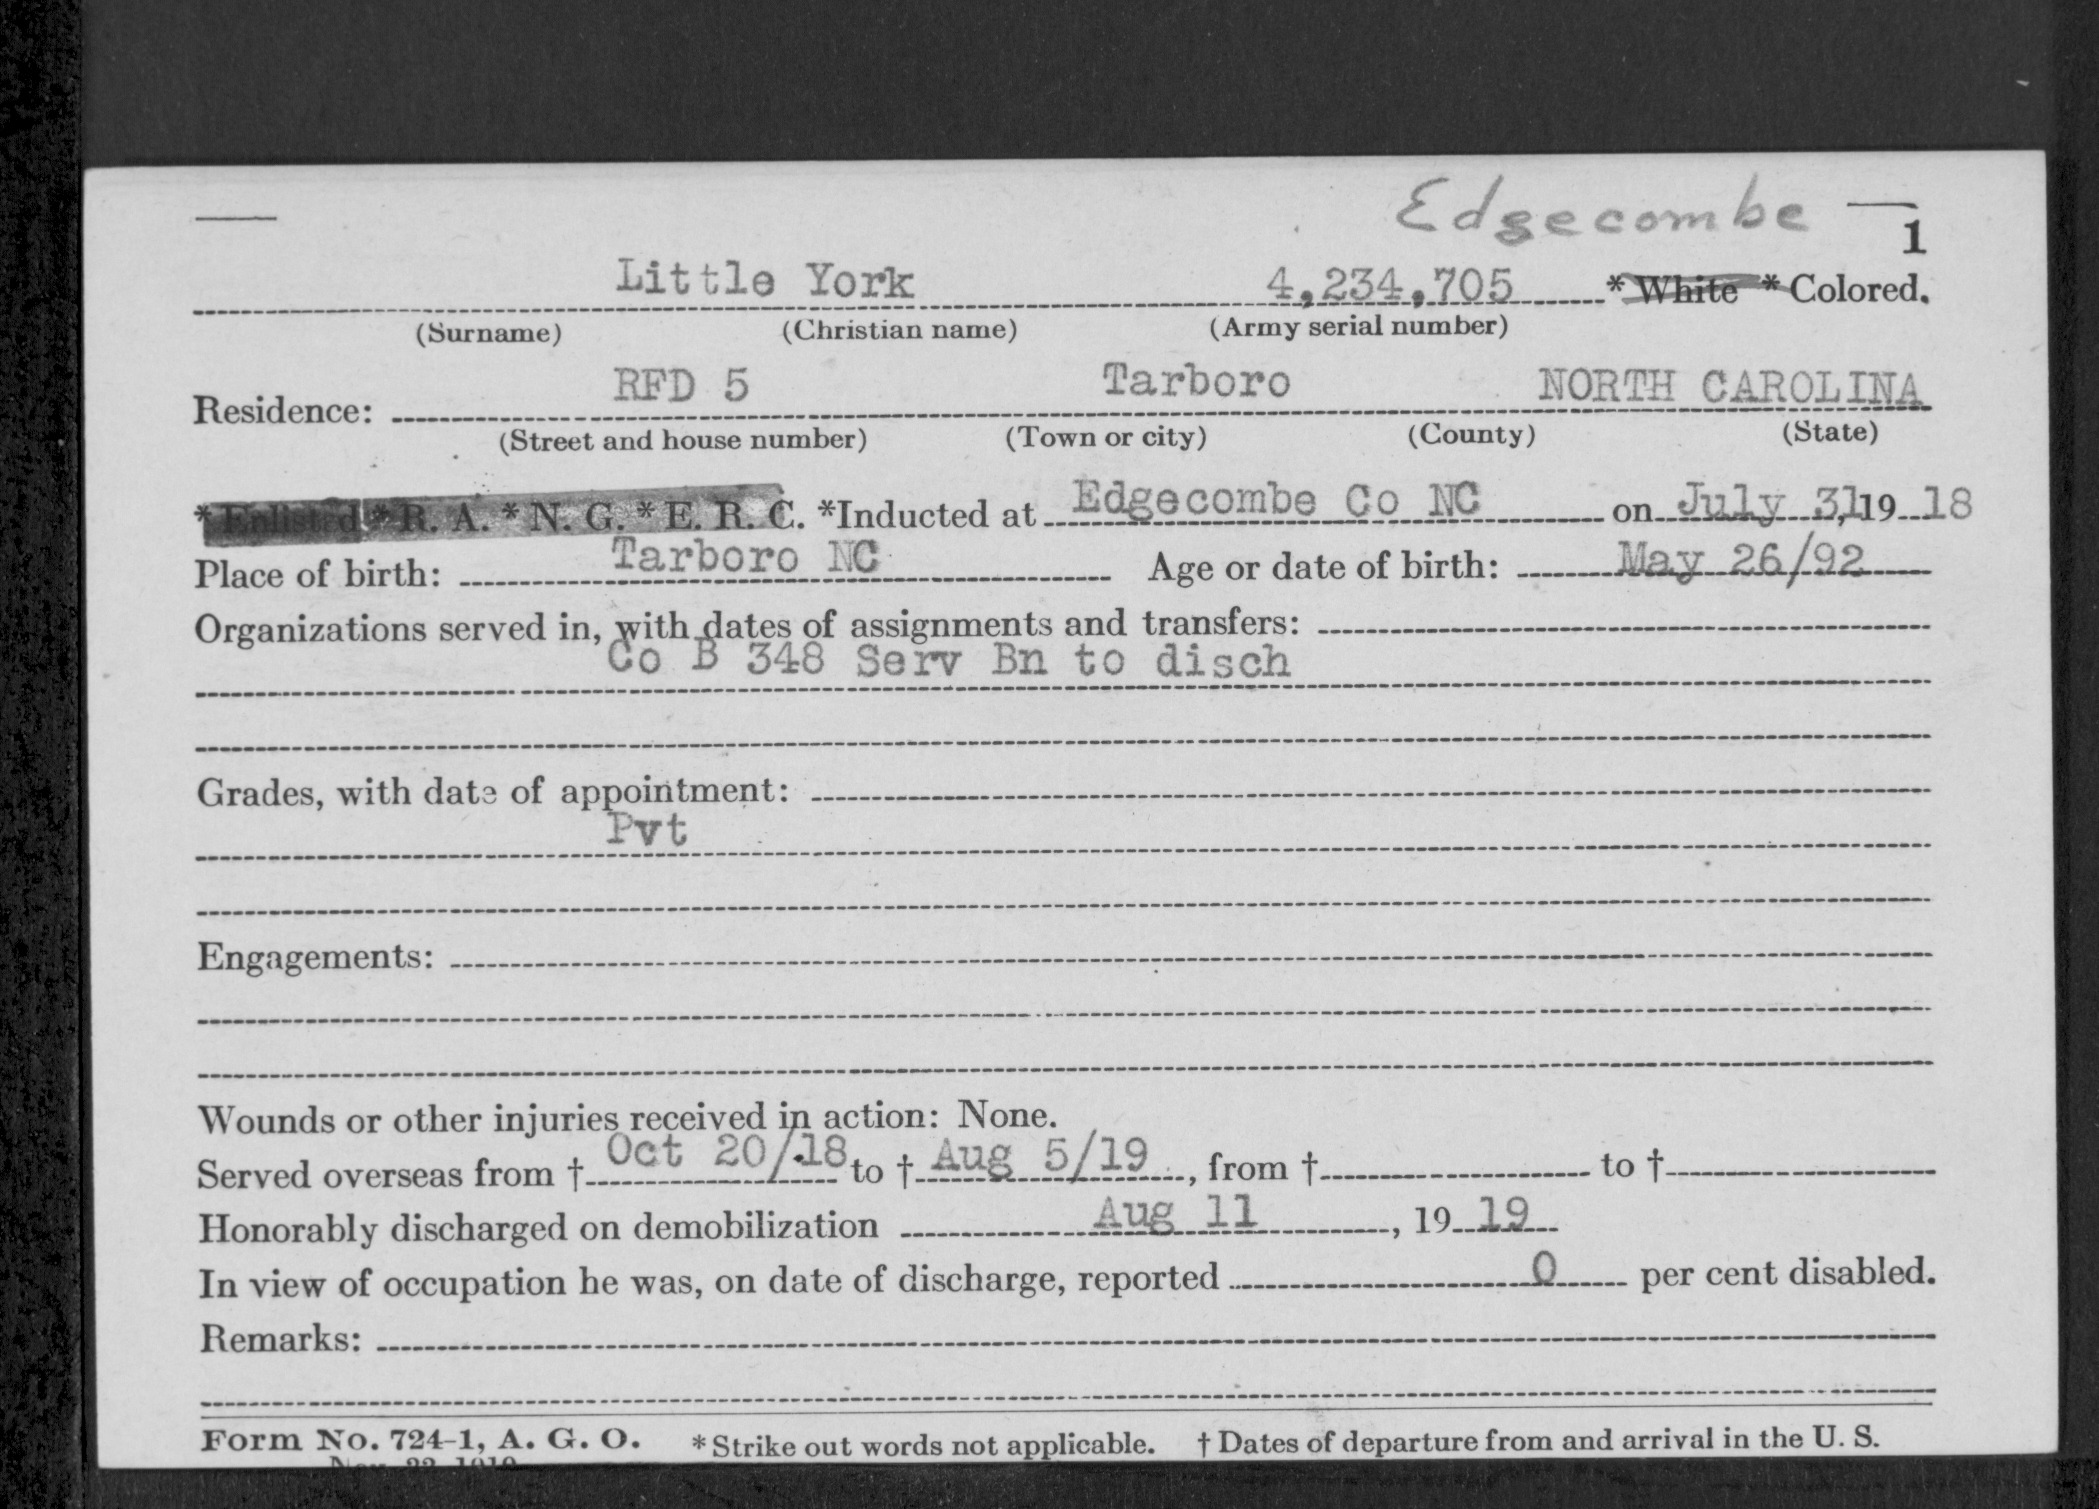 Edgecombe
1
Little York 4,234,705 * White * Colored.
(Surname) (Christian name) (Army serial number)
RFD 5 Tarboro NORTH CAROLINA
Residence:
(Street and house number) (Town or city) (County) (State)
* Enlisted * R. A. * N. G. * E. R. C. *Inducted at Edgecombe Co NC on July 31, 1918
Place of birth: Tarboro NC Age or date of birth: May 26/92
Organizations served in, with dates of assignments and transfers:
Co B 348 Serv Bn to disch
Grades, with date of appointment:
Pvt
Engagements:
Wounds or other injuries received in action: None.
Served overseas from † Oct 20/18 to † Aug 5/19, from † to †
Honorably discharged on demobilization Aug 11, 1919
In view of occupation he was, on date of discharge, reported 0 per cent disabled.
Remarks:
Form No. 724-1, A. G. O. *Strike out words not applicable. † Dates of departure from and arrival in the U. S.